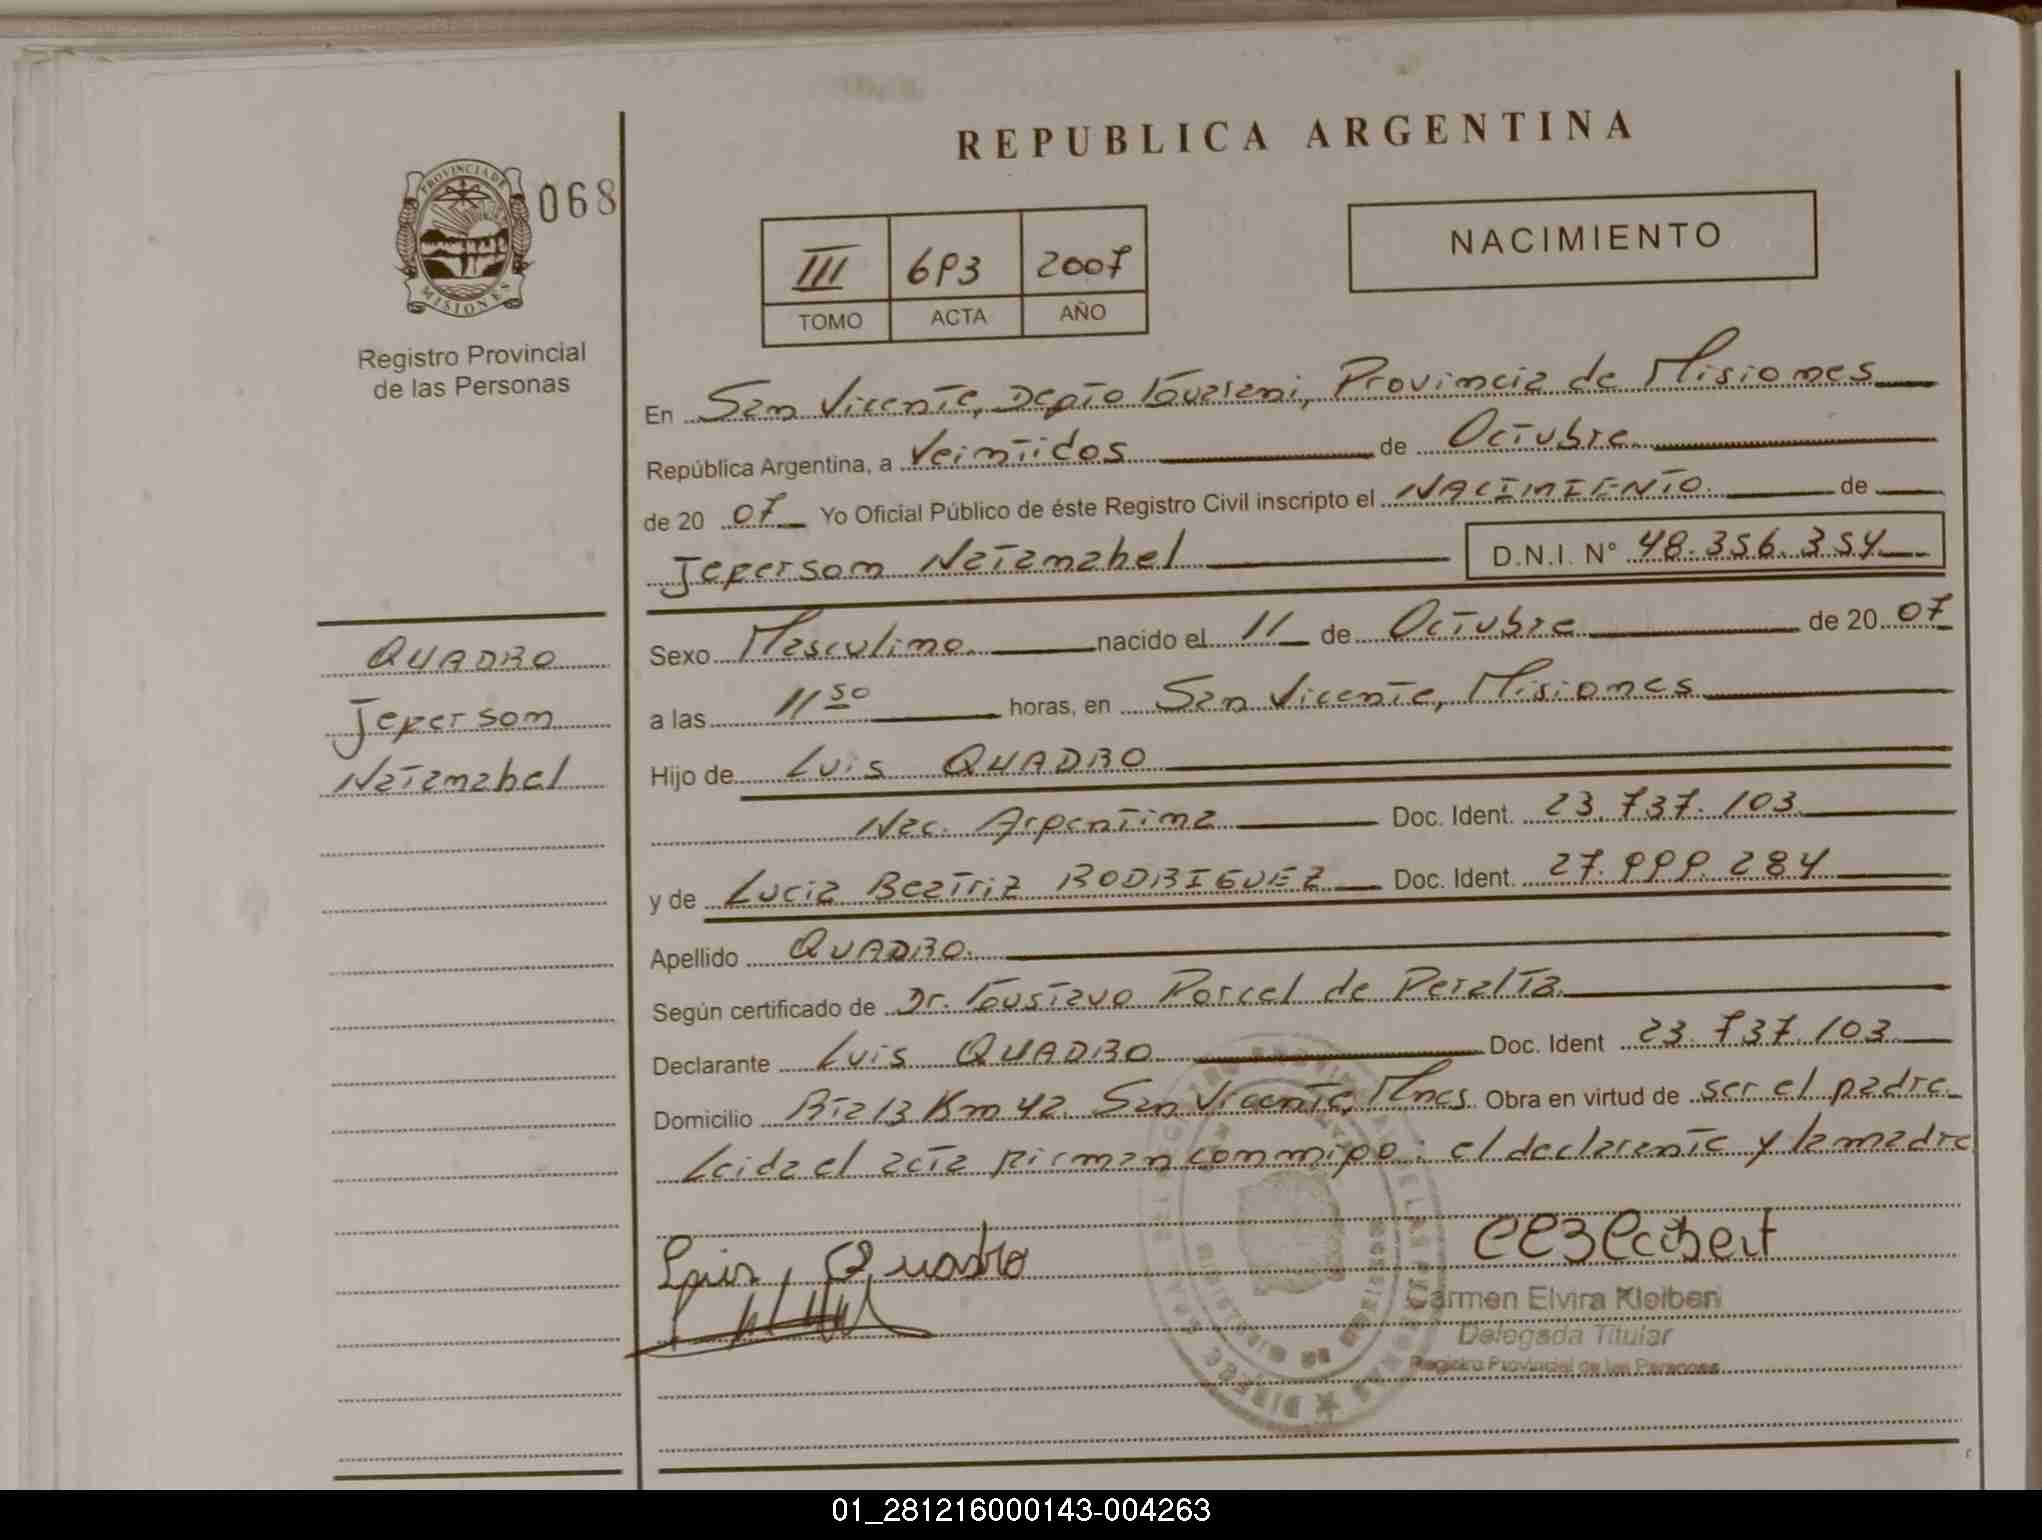 REPUBLICA ARGENTINA
PROVINCIA DE
MISIONES
068
Registro Provincial
de las Personas
III 693 2007
TOMO ACTA AÑO
NACIMIENTO
En San Vicente, Depto Guarani, Provincia de Misiones
República Argentina, a Veintidos de Octubre
de 20 07 Yo Oficial Público de éste Registro Civil inscripto el NACIMIENTO de
Jeperson Natanahel D.N.I. N° 48.356.354
QUADRO
Jeperson
Natanahel
Sexo Masculino nacido el 11 de Octubre de 20 07
a las 11 50 horas, en San Vicente, Misiones
Hijo de Luis QUADRO
Nac. Argentina Doc. Ident. 23.737.103
y de Lucia Beatriz RODRIGUEZ Doc. Ident. 27.999.284
Apellido QUADRO
Según certificado de Dr. Gustavo Porcel de Peralta
Declarante Luis QUADRO Doc. Ident 23.737.103
Domicilio Rta 13 Km 42. San Vicente, Mnes. Obra en virtud de ser el padre
Leida el acta firman conmigo: el declarante y la madre
Luis, Quadro
Carmen Elvira Kleibert
Delegada Titular
Registro Provincial de las Personas
01_281216000143-004263